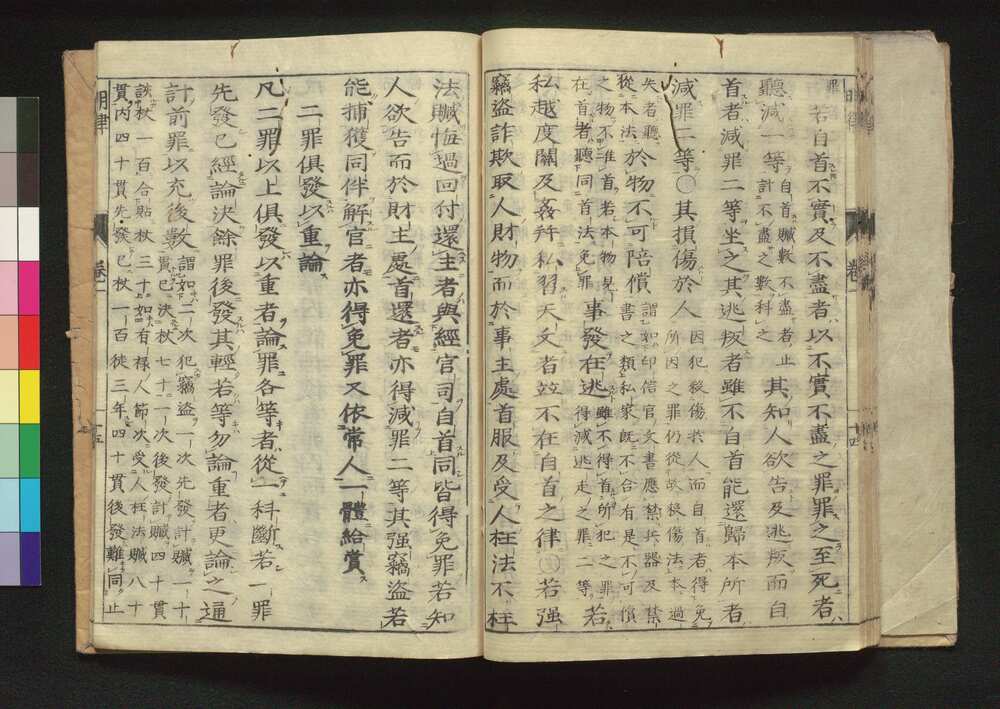 罪
若自首不實及不盡者以不實不盡之罪罪之至死者
聽減一等自首贓數不盡者止計不盡之數科之其知人欲告及逃叛而自
首者減罪二等坐之其逃叛者雖不自首能還歸本所者
減罪二等○其損傷於人因犯殺傷於人而自首者得免所因之罪仍從故殺傷法本過
失者聽從本法於物不可陪償謂如印信官文書應禁兵器及禁書之類私家既不合有是不可償
之物不准首若本物見在首者聽同首法免罪事發在逃雖不得首所犯之罪得減逃走之罪二等若
私越度關及姦幷私習天文者並不在自首之律○若强
竊盜詐欺取人財物而於事主處首服及受人枉法不枉
法贓悔過回付還主者與經官司自首同皆得免罪若知
人欲告而於財主處首還者亦得減罪二等其强竊盜若
能捕獲同伴解官者亦得免罪又依常人一體給賞
二罪俱發以重論
凡二罪以上俱發以重者論罪各等者從一科斷若一罪
先發已經論決餘罪後發其輕若等勿論重者更論之通
計前罪以充後數謂如二次犯竊盜一次先發計贓一十貫已決杖七十一次後發計贓四十貫
該杖一百合貼杖三十如有祿人節次受人枉法贓八十
貫內四十貫先發已杖一百徒三年四十貫後發難同止
明律 卷一 十五